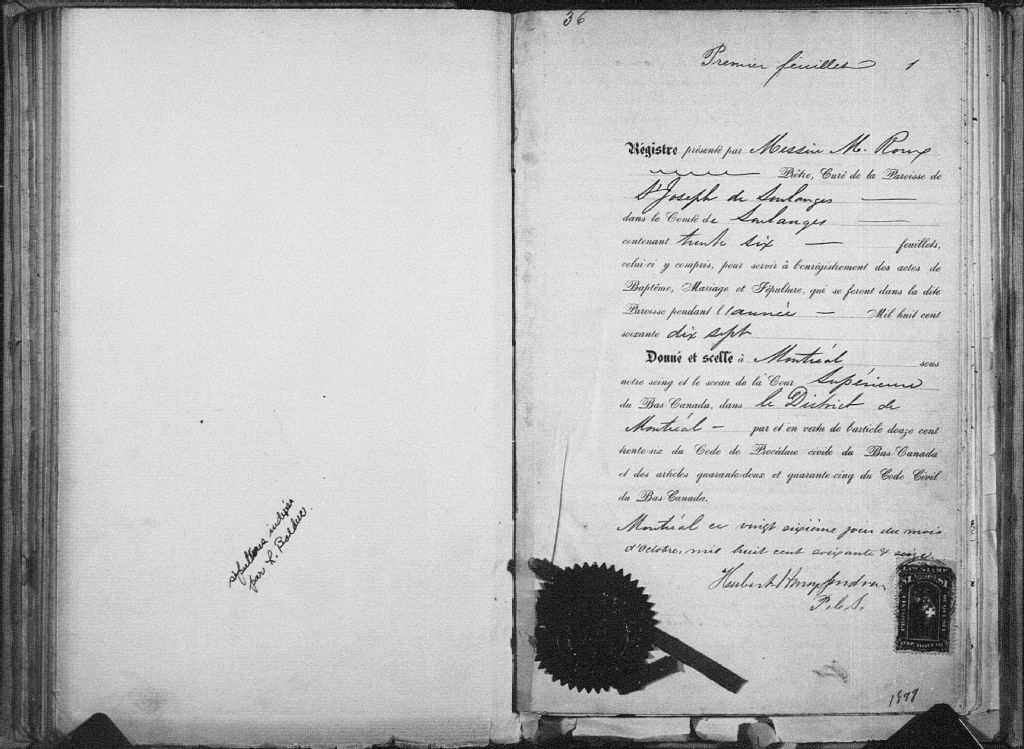 sépultures indexées
par L. Balduc.
36
Premier feuillet 1
Régistre présenté par Messire M. Roux
Prêtre, Curé de la Paroisse de
St Joseph de Soulanges
dans le Comté de Soulanges
contenant trente six feuillets,
celui-ci y compris, pour servir à l'enrégistrement des actes de
Baptême, Mariage et Sépulture, qui se feront dans la dite
Paroisse pendant l'année Mil huit cent
soixante dix sept
Donné et scellé à Montréal sous
notre seing et le sceau de la Cour Supérieure
du Bas-Canada, dans le District de
Montréal — par et en vertu de l'article douze cent
trente-six du Code de Procédure civile du Bas-Canada
et des articles quarante-deux et quarante-cinq du Code Civil
du Bas-Canada.
Montréal ce vingt sixième jour du mois
d'Octobre, mil huit cent soixante & seize
Hubert
P.C.S.
LAW STAMP
$1 $1
ONE DOLLAR
1877